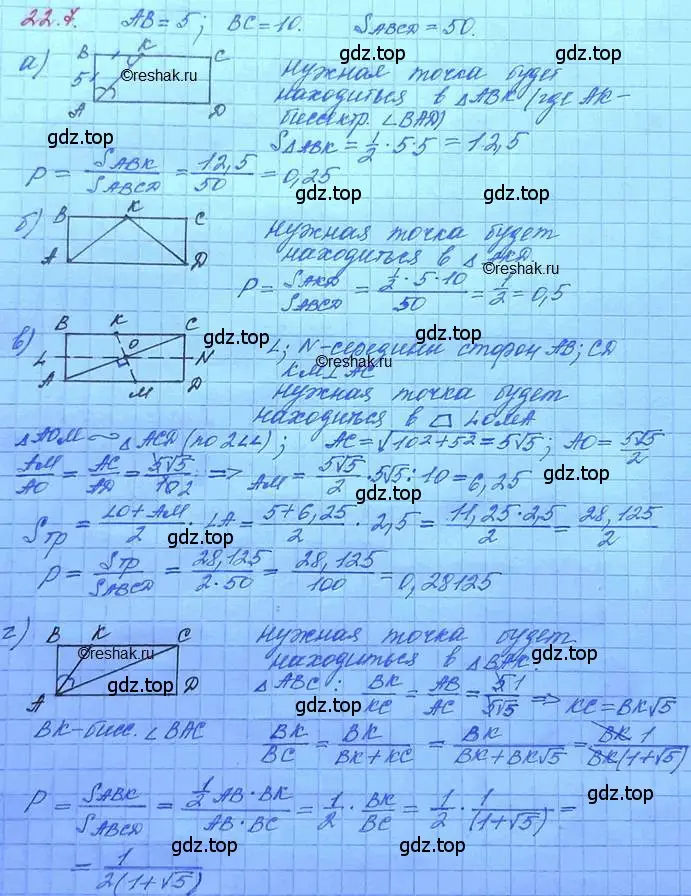 22.7. AB = 5; BC = 10. SABCD = 50.
а) B K C
5
A D
©reshak.ru
gdz.top
Нужная точка будет
находиться в △ABK (где AK-
биссектр. ∠BAD)
S△ABK = 1/2 · 5 · 5 = 12,5
P = SABK/SABCD = 12,5/50 = 0,25
gdz.top
gdz.top
б) B K C
A D
gdz.top
Нужная точка будет
находиться в △AKD.
©reshak.ru
P = SAKD/SABCD = (1/2 · 5 · 10)/50 = 1/2 = 0,5
gdz.top
в) B K C
L O N
A M D
©reshak.ru
gdz.top
L; N-середины сторон AB; CD
KM⊥AC
Нужная точка будет
находиться в ▱ LOMA
gdz.top
△AOM ~ △ACD (по 2∠∠); AC = √102+52 = 5√5; AO = 5√5/2
AM/AO = AC/AD = 5√5/10 2 => AM = 5√5/2 · 5√5 : 10 = 6,25
gdz.top
gdz.top
Sтр = LO+AM/2 · LA = 5+6,25/2 · 2,5 = 11,25·2,5/2 = 28,125/2
gdz.top
gdz.top
P = Sтр/SABCD = 28,125/2·50 = 28,125/100 = 0,28125
г) B K C
A D
©reshak.ru
gdz.top
Нужная точка будет
находиться в △BAK.
gdz.top
△ABC: BK/KC = AB/AC = 5 1/5√5 => KC = BK√5
BK-бисс. ∠BAC
BK/BC = BK/BK+KC = BK/BK+BK√5 = BK 1/BK(1+√5)
gdz.top
gdz.top
P = SABK/SABCD = 1/2 AB·BK/AB·BC = 1/2 · BK/BC = 1/2 · 1/(1+√5) =
gdz.top
= 1/2(1+√5)
gdz.top
gdz.top